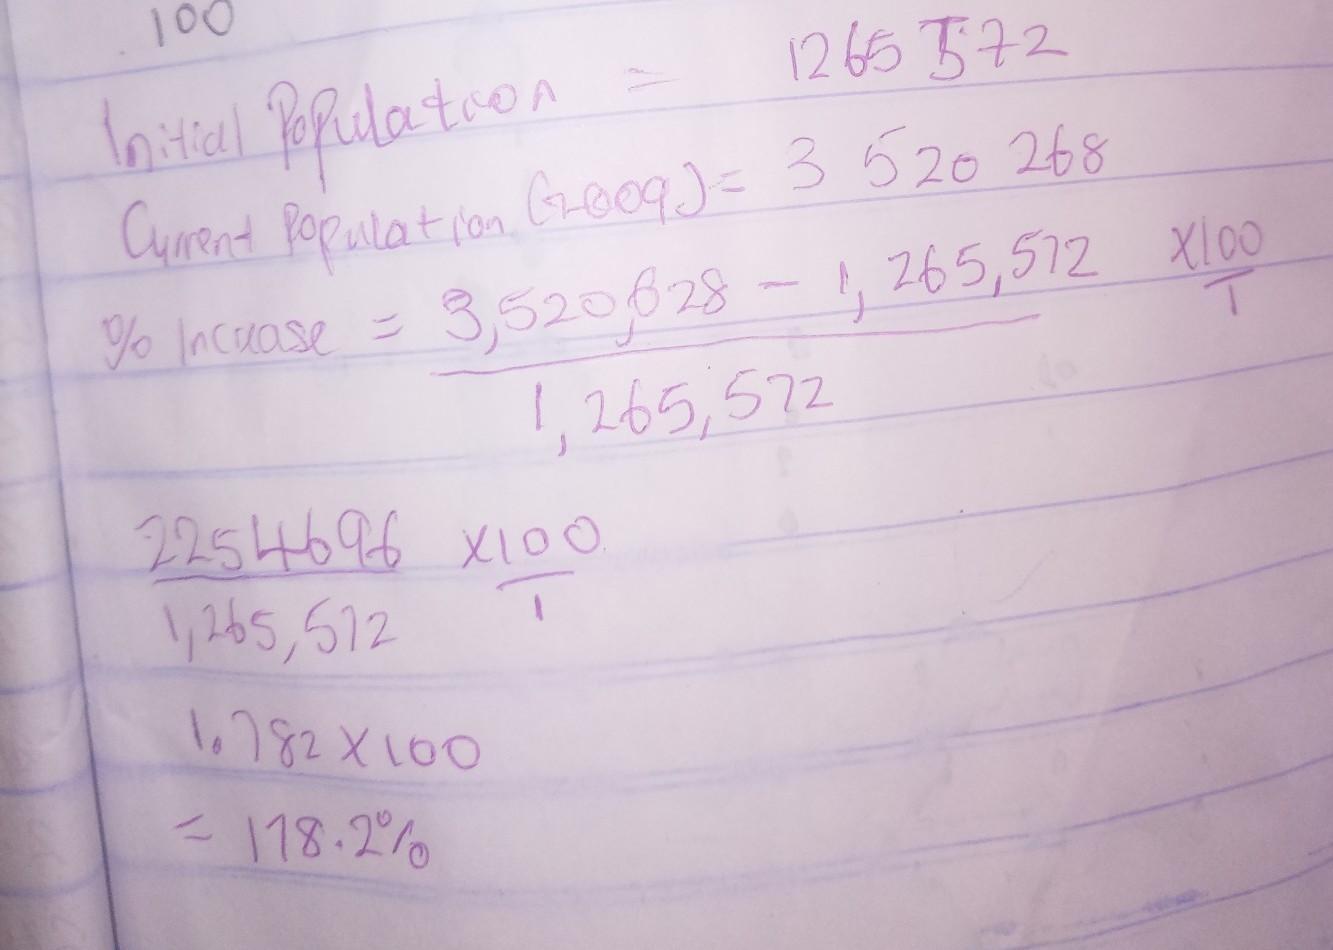 100
Initial Population = 1265 572
Current Population (2009) = 3 520 268
% Increase = 3,520,628 - 1,265,572 X100
1,265,572 1
2254696 X100
1,265,572 1
1.782 X 100
= 178.2%